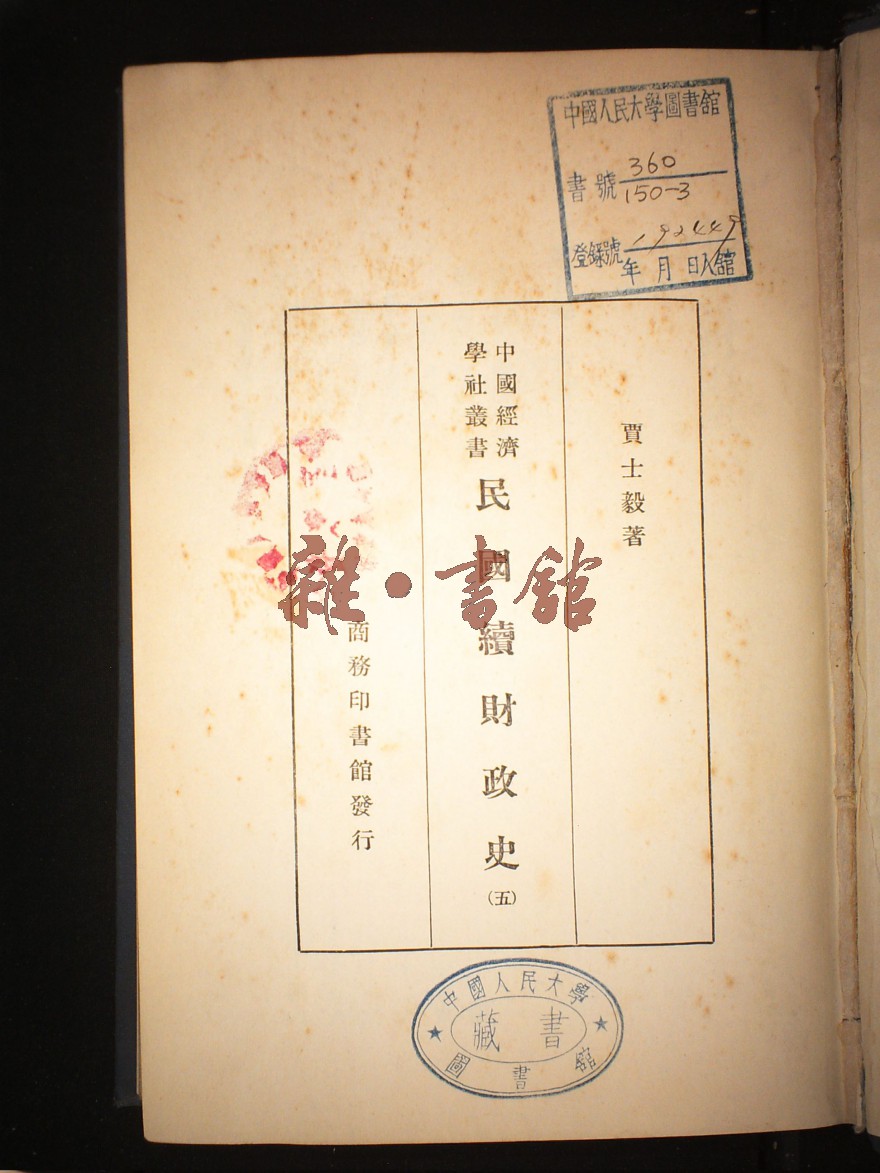 中國人民大學圖書館
書號 360
150-3
登錄號 192449
年 月 日入館
賈士毅著
中國經濟
學社叢書
民國續財政史
(五)
商務印書館發行
雜·書館
中國人民大學
藏書
圖書館